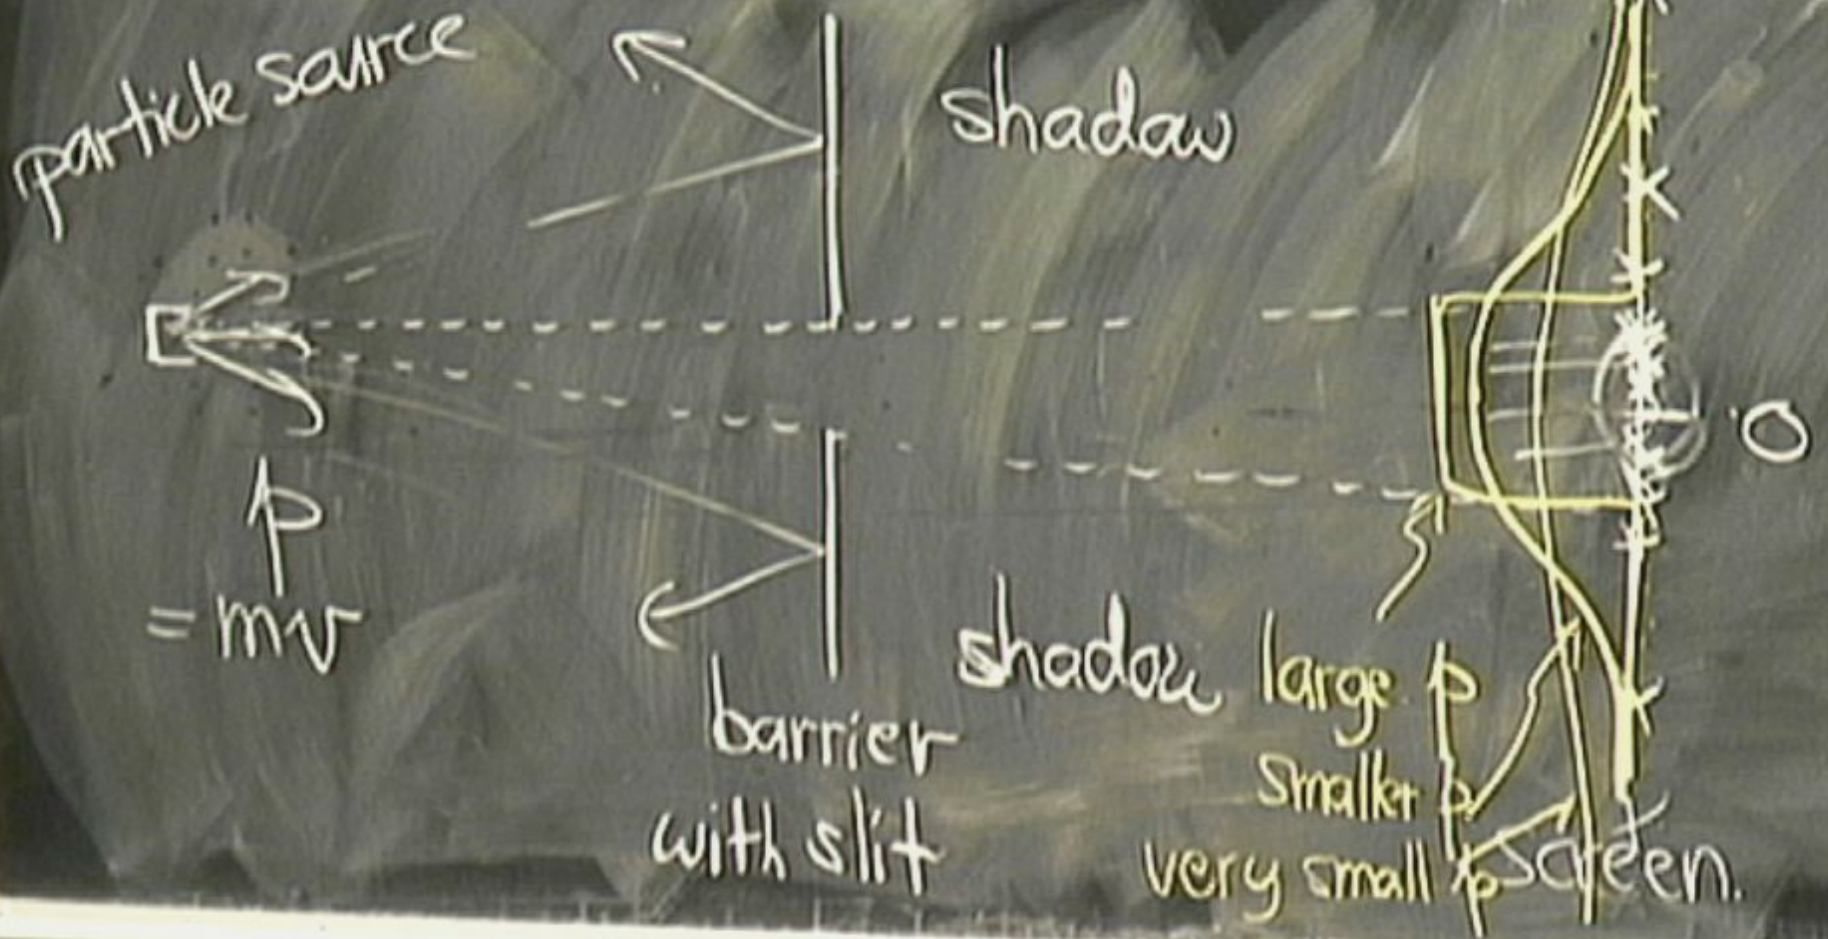 particle source
shadow
O
p
= mv
shadow
barrier
with slit
large p
smaller p
very small p
screen.